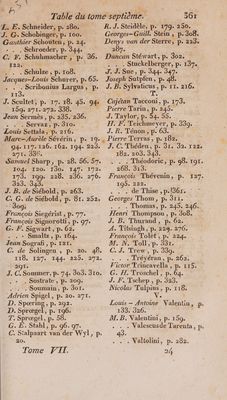 Table du tome septième. 361
L. E. Schneider, p. 280.
G. Schobinger, p. 100.
Gauthier Schouten, p. 24.
Schroeder, p. 344.
C. F. Schuhmacher, p. 36.
122.
. . . Schulze, p. 108.
Jacques-Louis Schurer, p. 65.
. . . Scribonius Largus, p.
113.
J. Scultet, p. 17. 18. 45. 94.
159. 271. 278. 338.
Jean Sermès, p. 235. 236.
. . . Servax, p. 310.
Louis Settala, p. 216.
Marc-Aurèle Séverin, p. 19.
94. 117. 126. 162. 194. 223.
271. 338.
Samuel Sharp, p. 28. 56. 57.
104. 120. 130. 147. 172.
173. 199. 228. 236. 276.
323. 343.
J. B. de Siébold, p. 263.
C. G. de Siébold, p. 81. 252.
309.
François Siegérist, p. 77.
François Signorotti, p. 97.
G. F. Sigwart, p. 62.
. . . Smalts, p. 164.
Jean Sografi, p. 121.
C. de Solingen, p. 20. 48.
118. 127. 144. 225. 272.
291.
J. C. Sommer, p. 74. 303. 310.
. . . Sostrate, p. 209.
. . . Soumain, p. 301.
Adrien Spigel, p. 20. 271.
D. Spering, p. 292.
D. Sprœgel, p. 196.
T. Sprœgel, p. 58.
G. E. Stahl, p. 96. 97.
C. Stalpaart van der Wyl, p.
20.
Tome VII.
R. J. Steidèle, p. 179. 250.
Georges-Guill. Stein, p. 308.
Denys van der Sterre, p. 223.
287.
Duncan Stéwart, p. 302.
. . . Stuckelberger, p. 137.
J. J. Sue, p. 344. 347.
Joseph Sutpfen, p. 48.
J. B. Sylvaticus, p. 11. 216.
T.
Cajétan Tacconi, p. 173.
Pierre Tarin, p. 245.
J. Taylor, p. 54. 55.
H. F. Teichmeyer, p. 339.
J. R. Ténon, p. 63.
Pierre Terras, p. 182.
J. C. Théden, p. 31. 32. 122.
182. 203. 343.
. . . Théodoric, p. 98. 191.
268. 313.
François Thévenin, p. 127.
195. 222.
. . . de Thise, p. 361.
Georges Thom, p. 311.
. . . Thomas, p. 245. 246.
Henri Thompson, p. 308.
J. B. Thurand, p. 62.
A. Titsingh, p. 224. 276.
François Tolet, p. 224.
M. N. Toll, p. 331.
C. J. Trew, p. 339.
. . . Tréyéran, p. 262.
Victor Trincavella, p. 115.
G. H. Troschel, p. 64.
J. F. Tschep, p. 323.
Nicolas Tulpius, p. 118.
V.
Louis-Antoine Valentin, p.
133. 326.
M. B. Valentini, p. 159.
. . . Valescusde Tarenta, p.
43.
. . . Valtolini, p. 282.
24